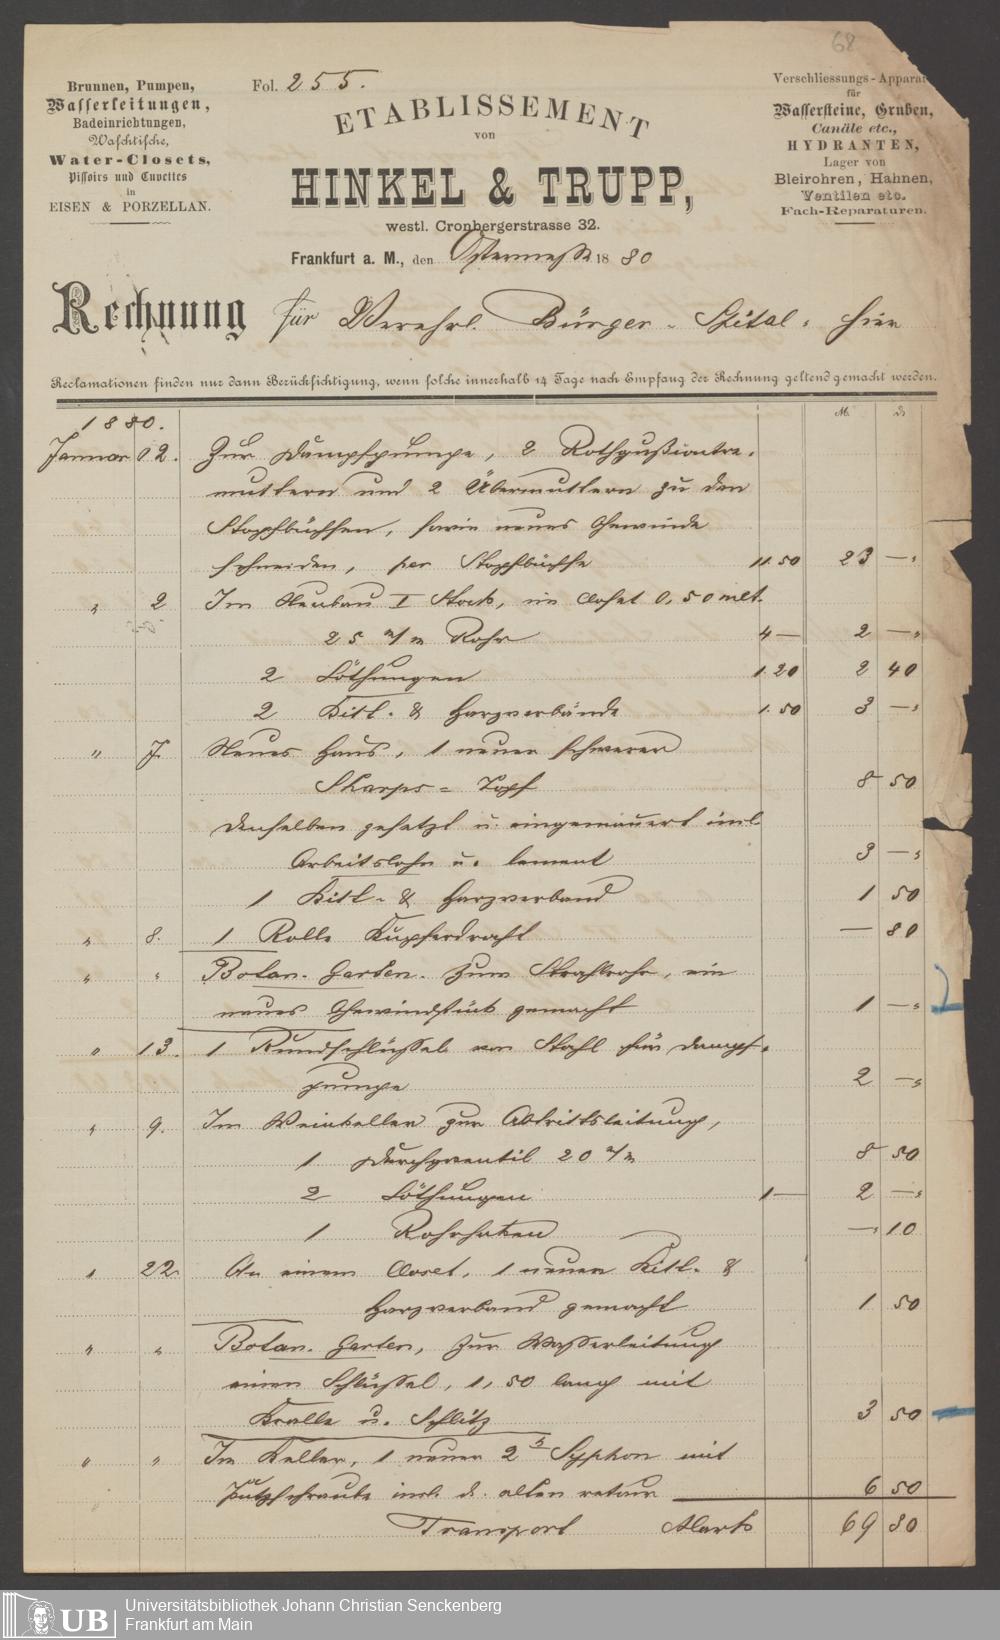 68
Brunnen, Pumpen,
Wasserleitungen,
Badeinrichtungen,
Waschtische,
Water-Closets,
Pissoirs und Cuvettes
in
EISEN & PORZELLAN.
Fol. 255.
ETABLISSEMENT
von
HINKEL & TRUPP,
westl. Cronbergerstrasse 32.
Frankfurt a. M., den Ostermesse 1880
Verschliessungs-Apparat
für
Wassersteine, Gruben,
Canäle etc.,
HYDRANTEN,
Lager von
Bleirohren, Hahnen,
Ventilen etc.
Fach-Reparaturen.
Rechnung für Verehrl. Bürger-Spital, hier
Reclamationen finden nur dann Berücksichtigung, wenn solche innerhalb 14 Tage nach Empfang der Rechnung geltend gemacht werden.
1880.
Januar 02. Zur Dampfpumpe, 2 Rothgußcontre-
muttern und 2 Übermuttern zu den
Stopfbüchsen, sowie neues Gewinde
schneiden, per Stopfbüchse 11.50 23 —
" 2 Im Neubau I Stock, im Closet 0,50 mtr.
25 m/m Rohr 4 — 2 —
2 Löthungen 1.20 2 40
2 Kitt- & Harzverbände 1.50 3 —
" 7. Neues Haus, 1 neuen schweren
Sharps-Topf 8 50
denselben gesetzt u. eingemauert incl.
Arbeitslohn u. Cement 3 —
1 Kitt- & Harzverband 1 50
" 8. 1 Rolle Kupferdraht — 80
" " Botan. Garten. Zum Strahlrohr, ein
neues Gewindstück gemacht 1 —
" 13. 1 Rundschlüssel von Stahl für Dampf-
pumpe 2 —
" 9. Im Weinkeller zur Abtrittsleitung,
1 Durchgventil 20 m/m 8 50
2 Löthungen 1 — 2 —
1 Rohrhaken — 10
" 22. An einem Closet, 1 neuen Kitt- &
Harzverband gemacht 1 50
" " Botan. Garten, zur Wasserleitung
einen Schlüssel, 1,50 lang mit
Kralle u. Schlitz 3 50
" " Im Keller, 1 neuen 2" Syphon mit
Putzschraube incl. d. alten retour 6 50
Transport Mark 69 80
UB
Universitätsbibliothek Johann Christian Senckenberg
Frankfurt am Main